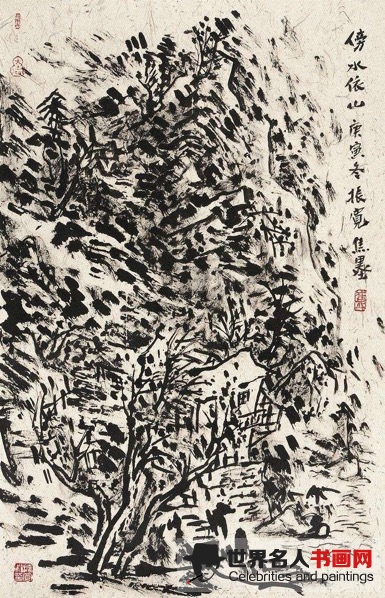 傍水依山 庚寅冬 振寬 焦墨
世界名人书画网
Celebrities and paintings